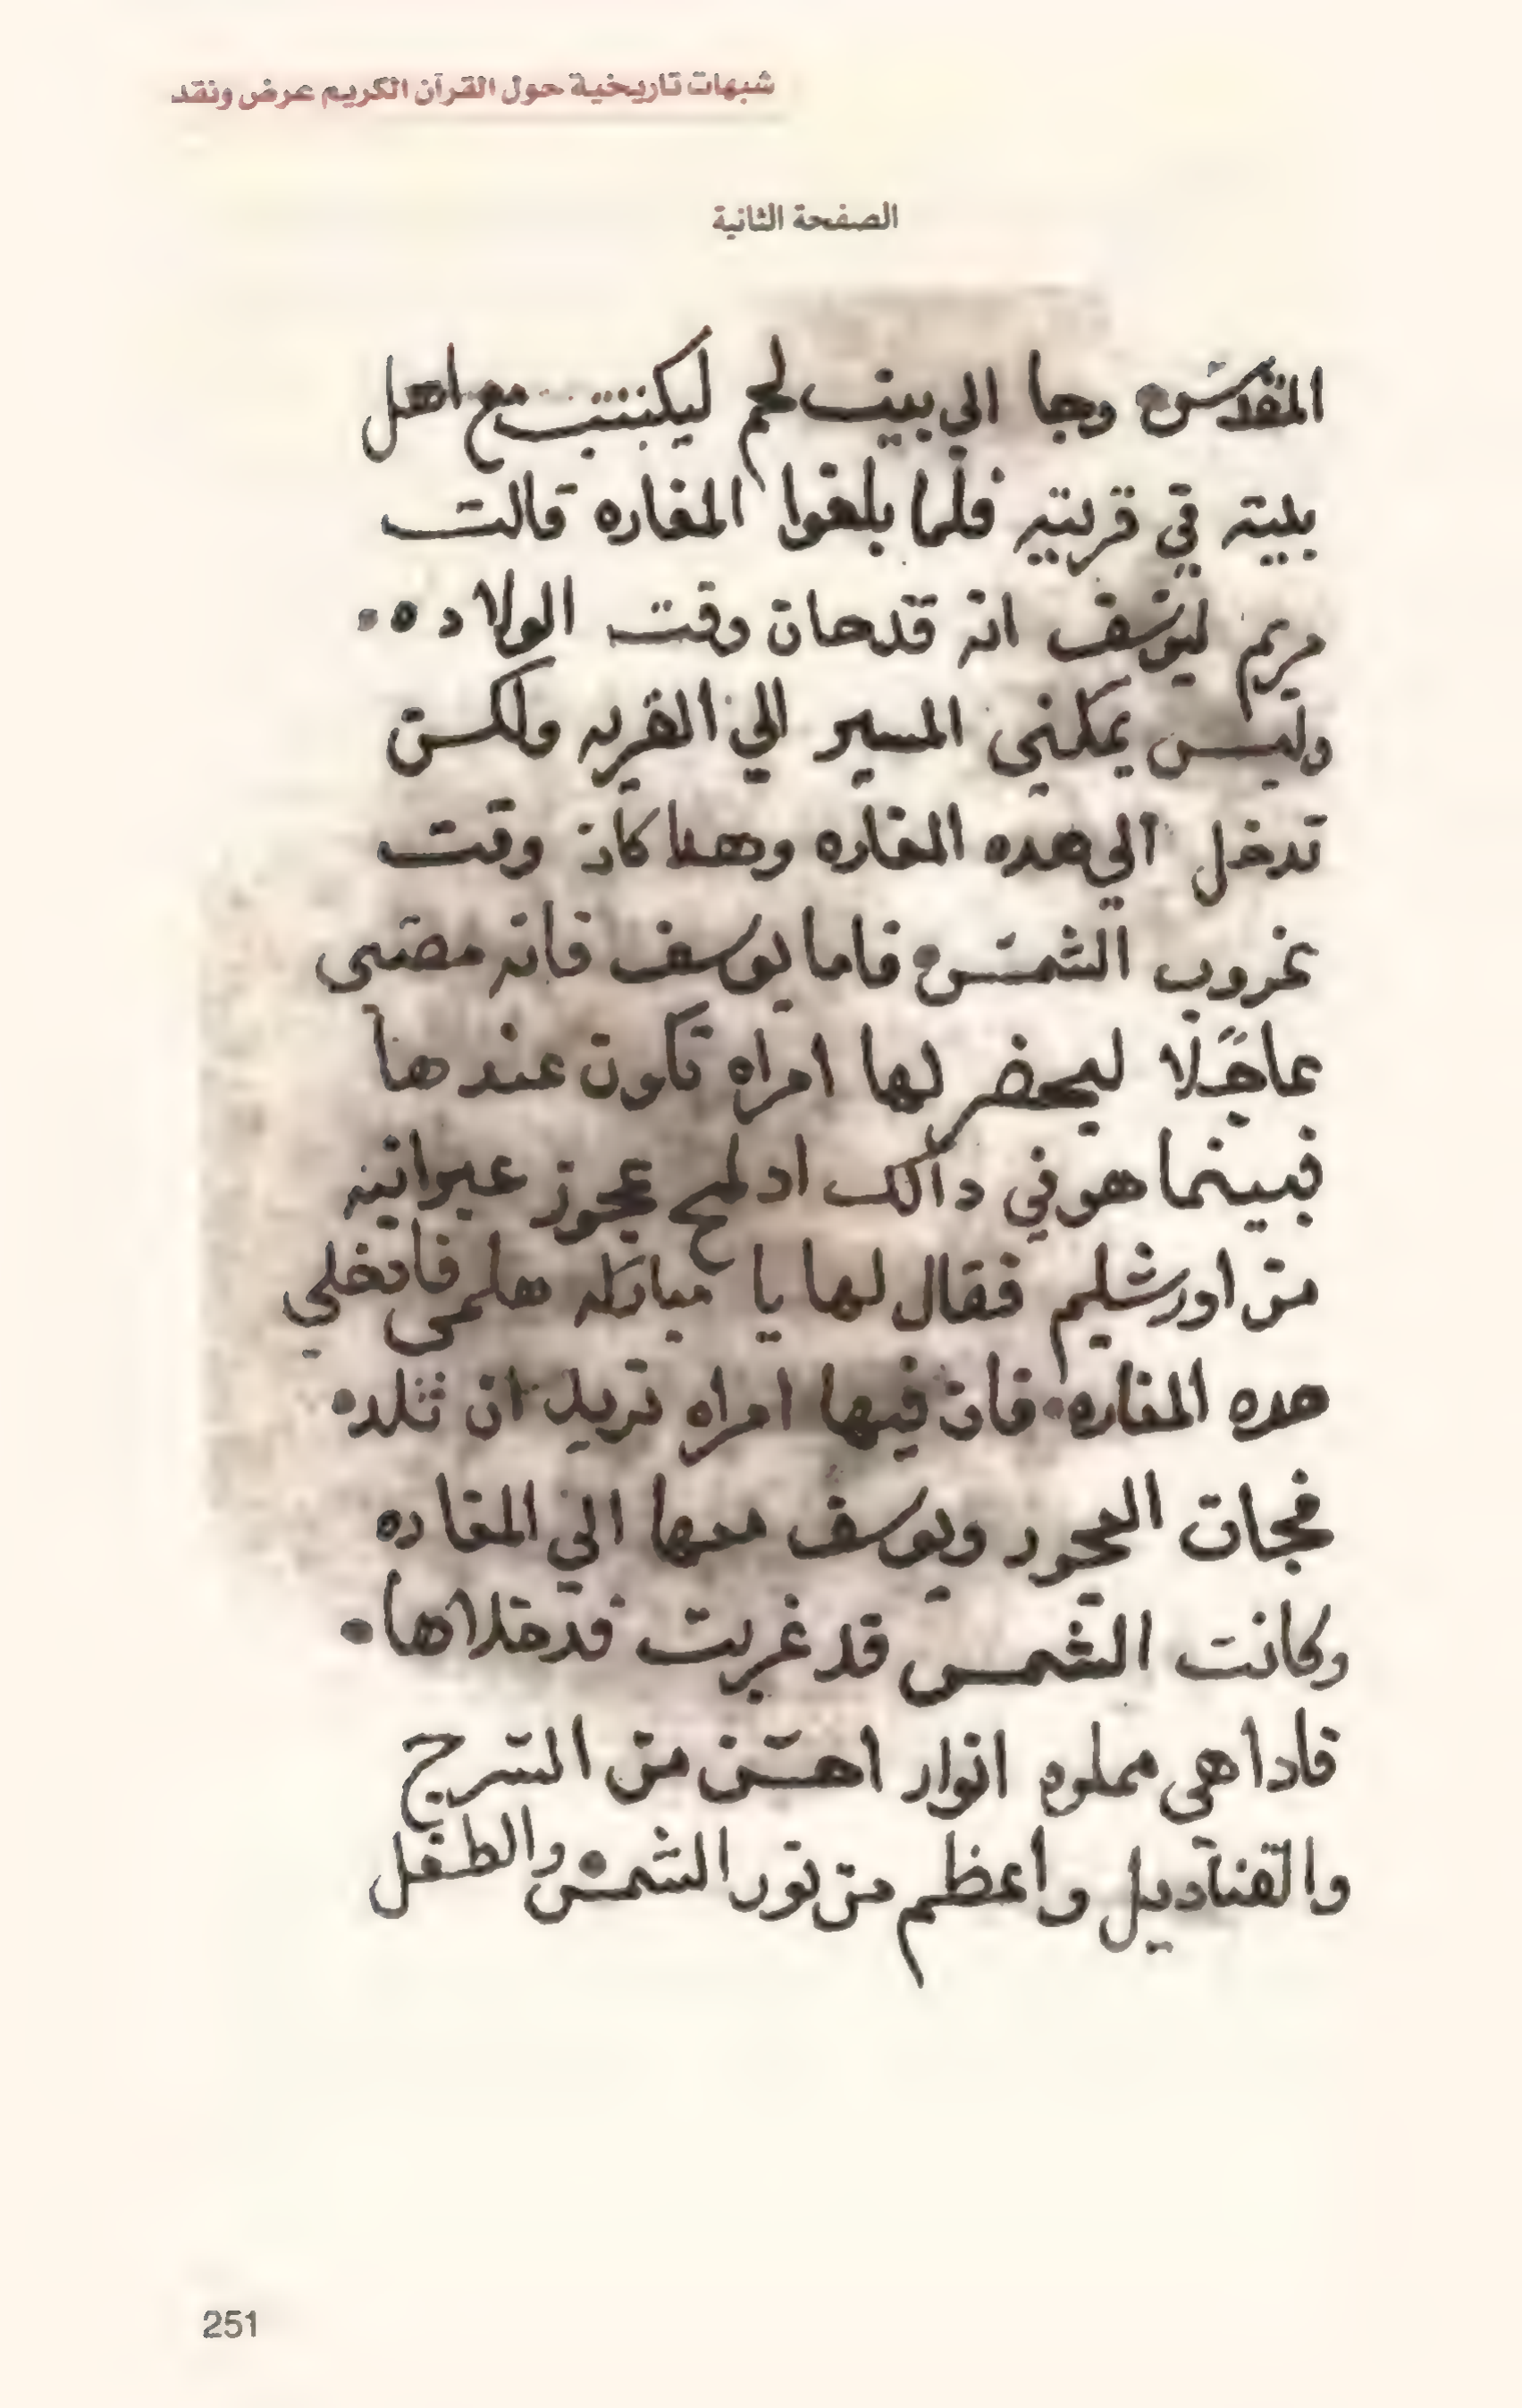 شبهات تاريخية حول القرآن الكريم عرض ونقد
الصفحة الثانية
المقدس وجا الى بيت لحم ليكتتب مع اهل
بيته في قريته فلما بلغوا المغاره قالت
مريم ليوسف انه قد حان وقت الولاده
وليس يمكنني المسير الي القريه ولكن
ندخل الي هده المغاره وهدا كان وقت
غروب الشمس فاما يوسف فانه مضى
عاجلا ليحضر لها امراه تكون عندها
فبينما هو في دالك اد لمح عجوز عبرانيه
من اورشليم فقال لها يا مباركه هلمى فادخلي
هده المغاره فان فيها امراه تريد ان تلد
فجات العجوز ويوسف معها الى المغاره
وكانت الشمس قد غربت فدخلاها
فادا هى مملوه انوار احسن من السرج
والقناديل واعظم من نور الشمس والطفل
251